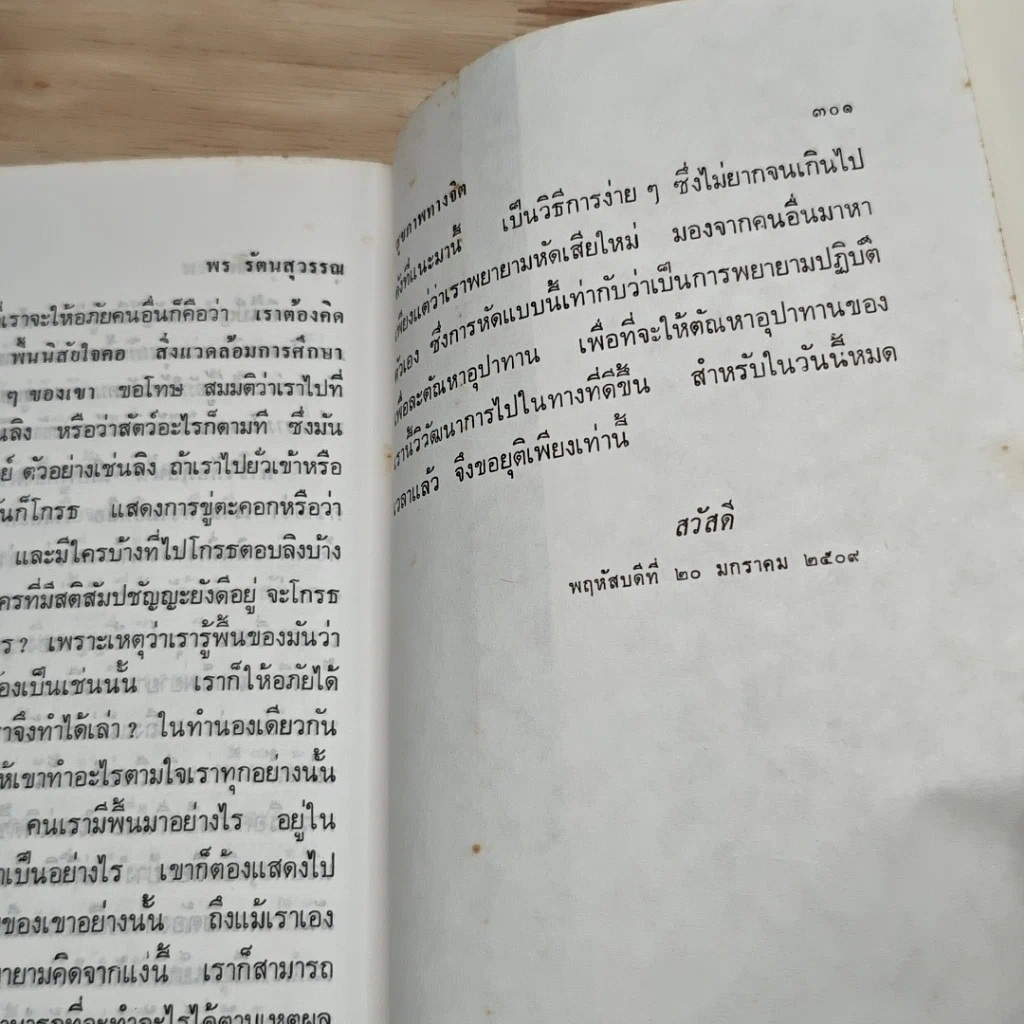 พร รัตนสุวรรณ
เราจะให้อภัยคนอื่นก็คือว่า เราต้องคิด
พื้นนิสัยใจคอ สิ่งแวดล้อมการศึกษา
ๆ ของเขา ขอโทษ สมมติว่าเราไปที่
หรือว่าสัตว์อะไรก็ตามที่ ซึ่งมัน
ตัวอย่างเช่นลิง ถ้าเราไปยั่วเข้าหรือ
ก็โกรธ แสดงการขู่ตะคอกหรือว่า
และมีใครบ้างที่ไปโกรธตอบลิงบ้าง
ที่มีสติสัมปชัญญะยังดีอยู่ จะโกรธ
? เพราะเหตุว่าเรารู้พื้นของมันว่า
เป็นเช่นนั้น เราก็ให้อภัยได้
จึงทำได้เล่า ? ในทำนองเดียวกัน
เขาทำอะไรตามใจเราทุกอย่างนั้น
คนเรามีพื้นมาอย่างไร อยู่ใน
เป็นอย่างไร เขาก็ต้องแสดงไป
ของเขาอย่างนั้น ถึงแม้เราเอง
คิดจากแง่นี้ เราก็สามารถ
ที่จะทำอะไรได้ตามเหตุผล
๓๐๑
สุขภาพทางจิต
ดังที่แนะมานี้ เป็นวิธีการง่าย ๆ ซึ่งไม่ยากจนเกินไป
เพียงแต่ว่าเราพยายามหัดเสียใหม่ มองจากคนอื่นมาหา
ตัวเอง ซึ่งการหัดแบบนี้เท่ากับว่าเป็นการพยายามปฏิบัติ
เพื่อละตัณหาอุปาทาน เพื่อที่จะให้ตัณหาอุปาทานของ
เรานี้วิวัฒนาการไปในทางที่ดีขึ้น สำหรับในวันนี้หมด
เวลาแล้ว จึงขอยุติเพียงเท่านี้
สวัสดี
พฤหัสบดีที่ ๒๐ มกราคม ๒๕๐๙